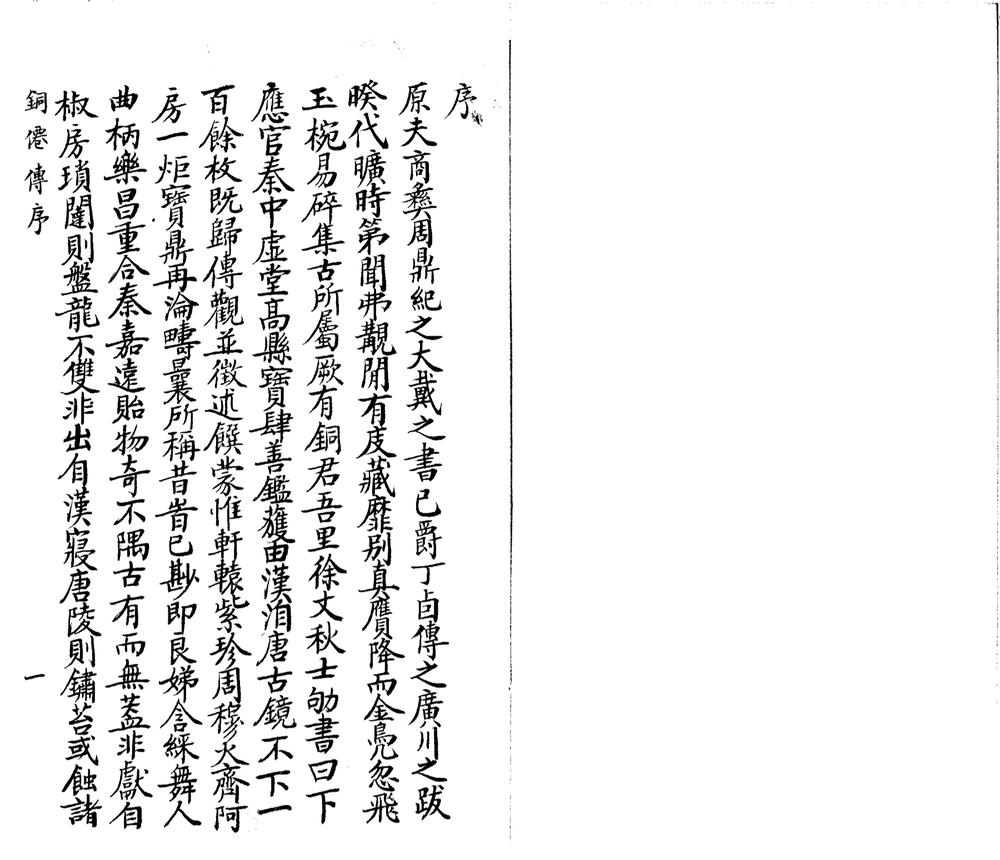 序
原夫商彝周鼎紀之大戴之書已爵丁卣傳之廣川之跋
暌代曠時第聞弗覩閒有庋藏靡別真贗降而金鳧忽飛
玉椀易碎集古所屬厥有銅君吾里徐丈秋士劬書日下
應官秦中虛堂高縣寶肆善鑑蒦由漢洎唐古鏡不下一
百餘枚既歸傳觀並徵述饌蒙惟軒轅紫珍周穆火齊阿
房一炬寶鼎再淪疇曩所稱昔昔已尠即良娣含綵舞人
曲柄樂昌重合秦嘉遠貽物奇不隅古有而無葢非獻自
椒房瑣闥則盤龍不雙非出自漢寢唐陵則鏽苔或蝕諸
銅僊傳序
一